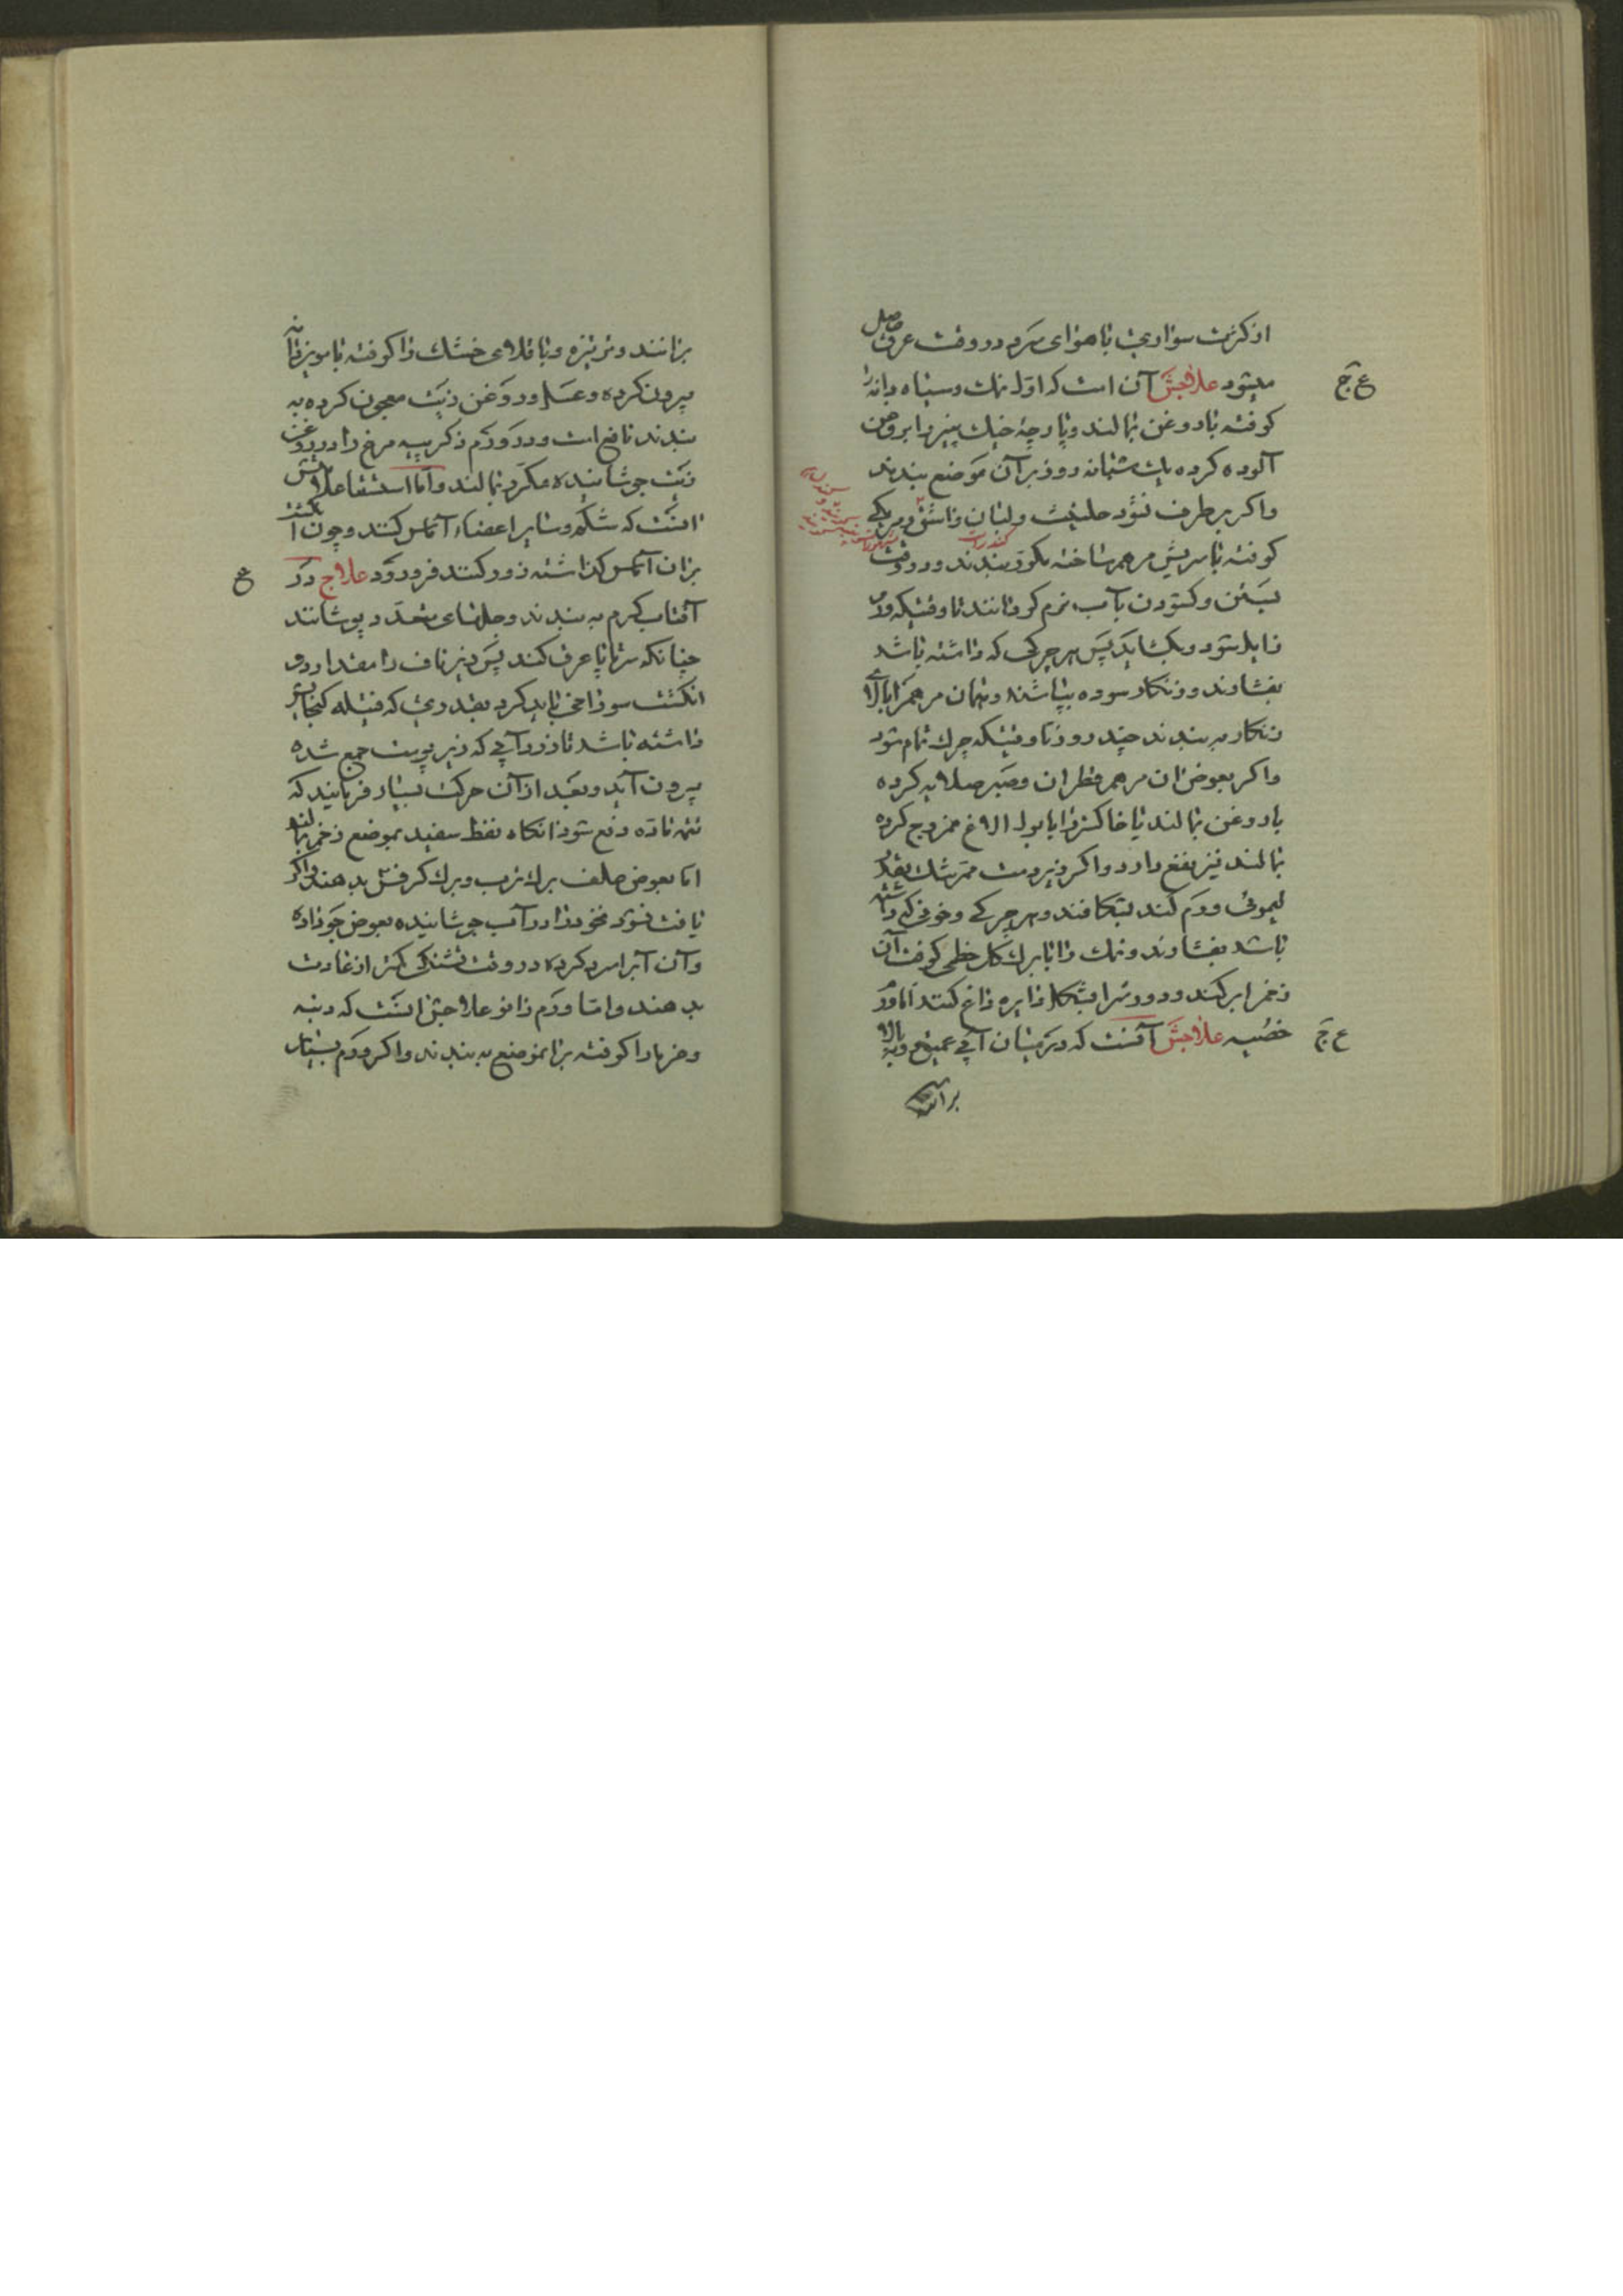 از کثرت سواری یا هوای سرد در وقت عرق حاصل
میشود علاجش آن است که اول نمک و سیاه دانه را
کوفته با روغن بمالند و پارچهٔ خیک پنیر را بروغن
آلوده کرده یک شبانه روز بر آن موضع ببندند
واکر برطرف نشود حلتیت ولبان و اشق
کوفته با سریش مرهم ساخته ببندند و در وقت
بستن و کشودن بآب نرم کردانند تا وقتیکه ورم
زایل شود و بکشاید پس هر چرکی که داشته باشد
بفشارند و زنکار سوده بپاشند و همان مرهم را بالای
زنکار به بندند چند روز تا وقتیکه چرک تمام شود
واکر بعوض آن مرهم قطران و صبر صلایه کرده
با روغن بمالند یا خاکستر را با بول الاغ ممزوج کرده
بمالند نیز نفع دارد واکر زیر دست مرتشک بقدر
لیموئی ورم کند بشکافند و هر چرکی و خونی که داشته
باشد بفشارند و نمک را با برک کل خطمی کوفته آن
زخم را پر کنند و دور شرا بشکل دایره داغ کنند اما ورم
خصیه علاجش آنست که در میان آبی عمیق و به بالا
برانند
برانند و تربیزه و باقلای خشک را کوفته با مویز دانه
بیرون کرده و عسل و روغن زیت معجون کرده به
بندند نافع است و در ورم ذکر پیه مرغ را در روغن
زیت جوشانیده مکرر بمالند واما استسقا علامتش
انست که شکم و سایر اعضاء آماس کنند و چون انکشت
بران آماس کذاشته زور کنند فرو رود علاج در
آفتاب کرم به بندند و جلهای متعدد بپوشانند
چنانکه سرتاپا عرق کند پس زیر ناف را مقدار دو
انکشت سوراخی باید کرد بقدری که فتیله کنجایش
داشته باشد تا زرد آبی که زیر پوست جمع شده
بیرون آید و بعد از آن حرکت بسیار فرمایند که
تتمه ماده دفع شود انکاه نفط سفید بموضع زخم بمالند
اما بعوض علف برک ترب و برک کرفس بدهند واکر
یافت نشود نخود را در آب جوشانیده بعوض جو داده
وآن آبرا سرد کرده در وقت تشنکی کمتر از عادت
بدهند واما ورم زانو علاجش انست که دنبه
و خرما را کوفته برانموضع به بندند واکر ورم بسیار